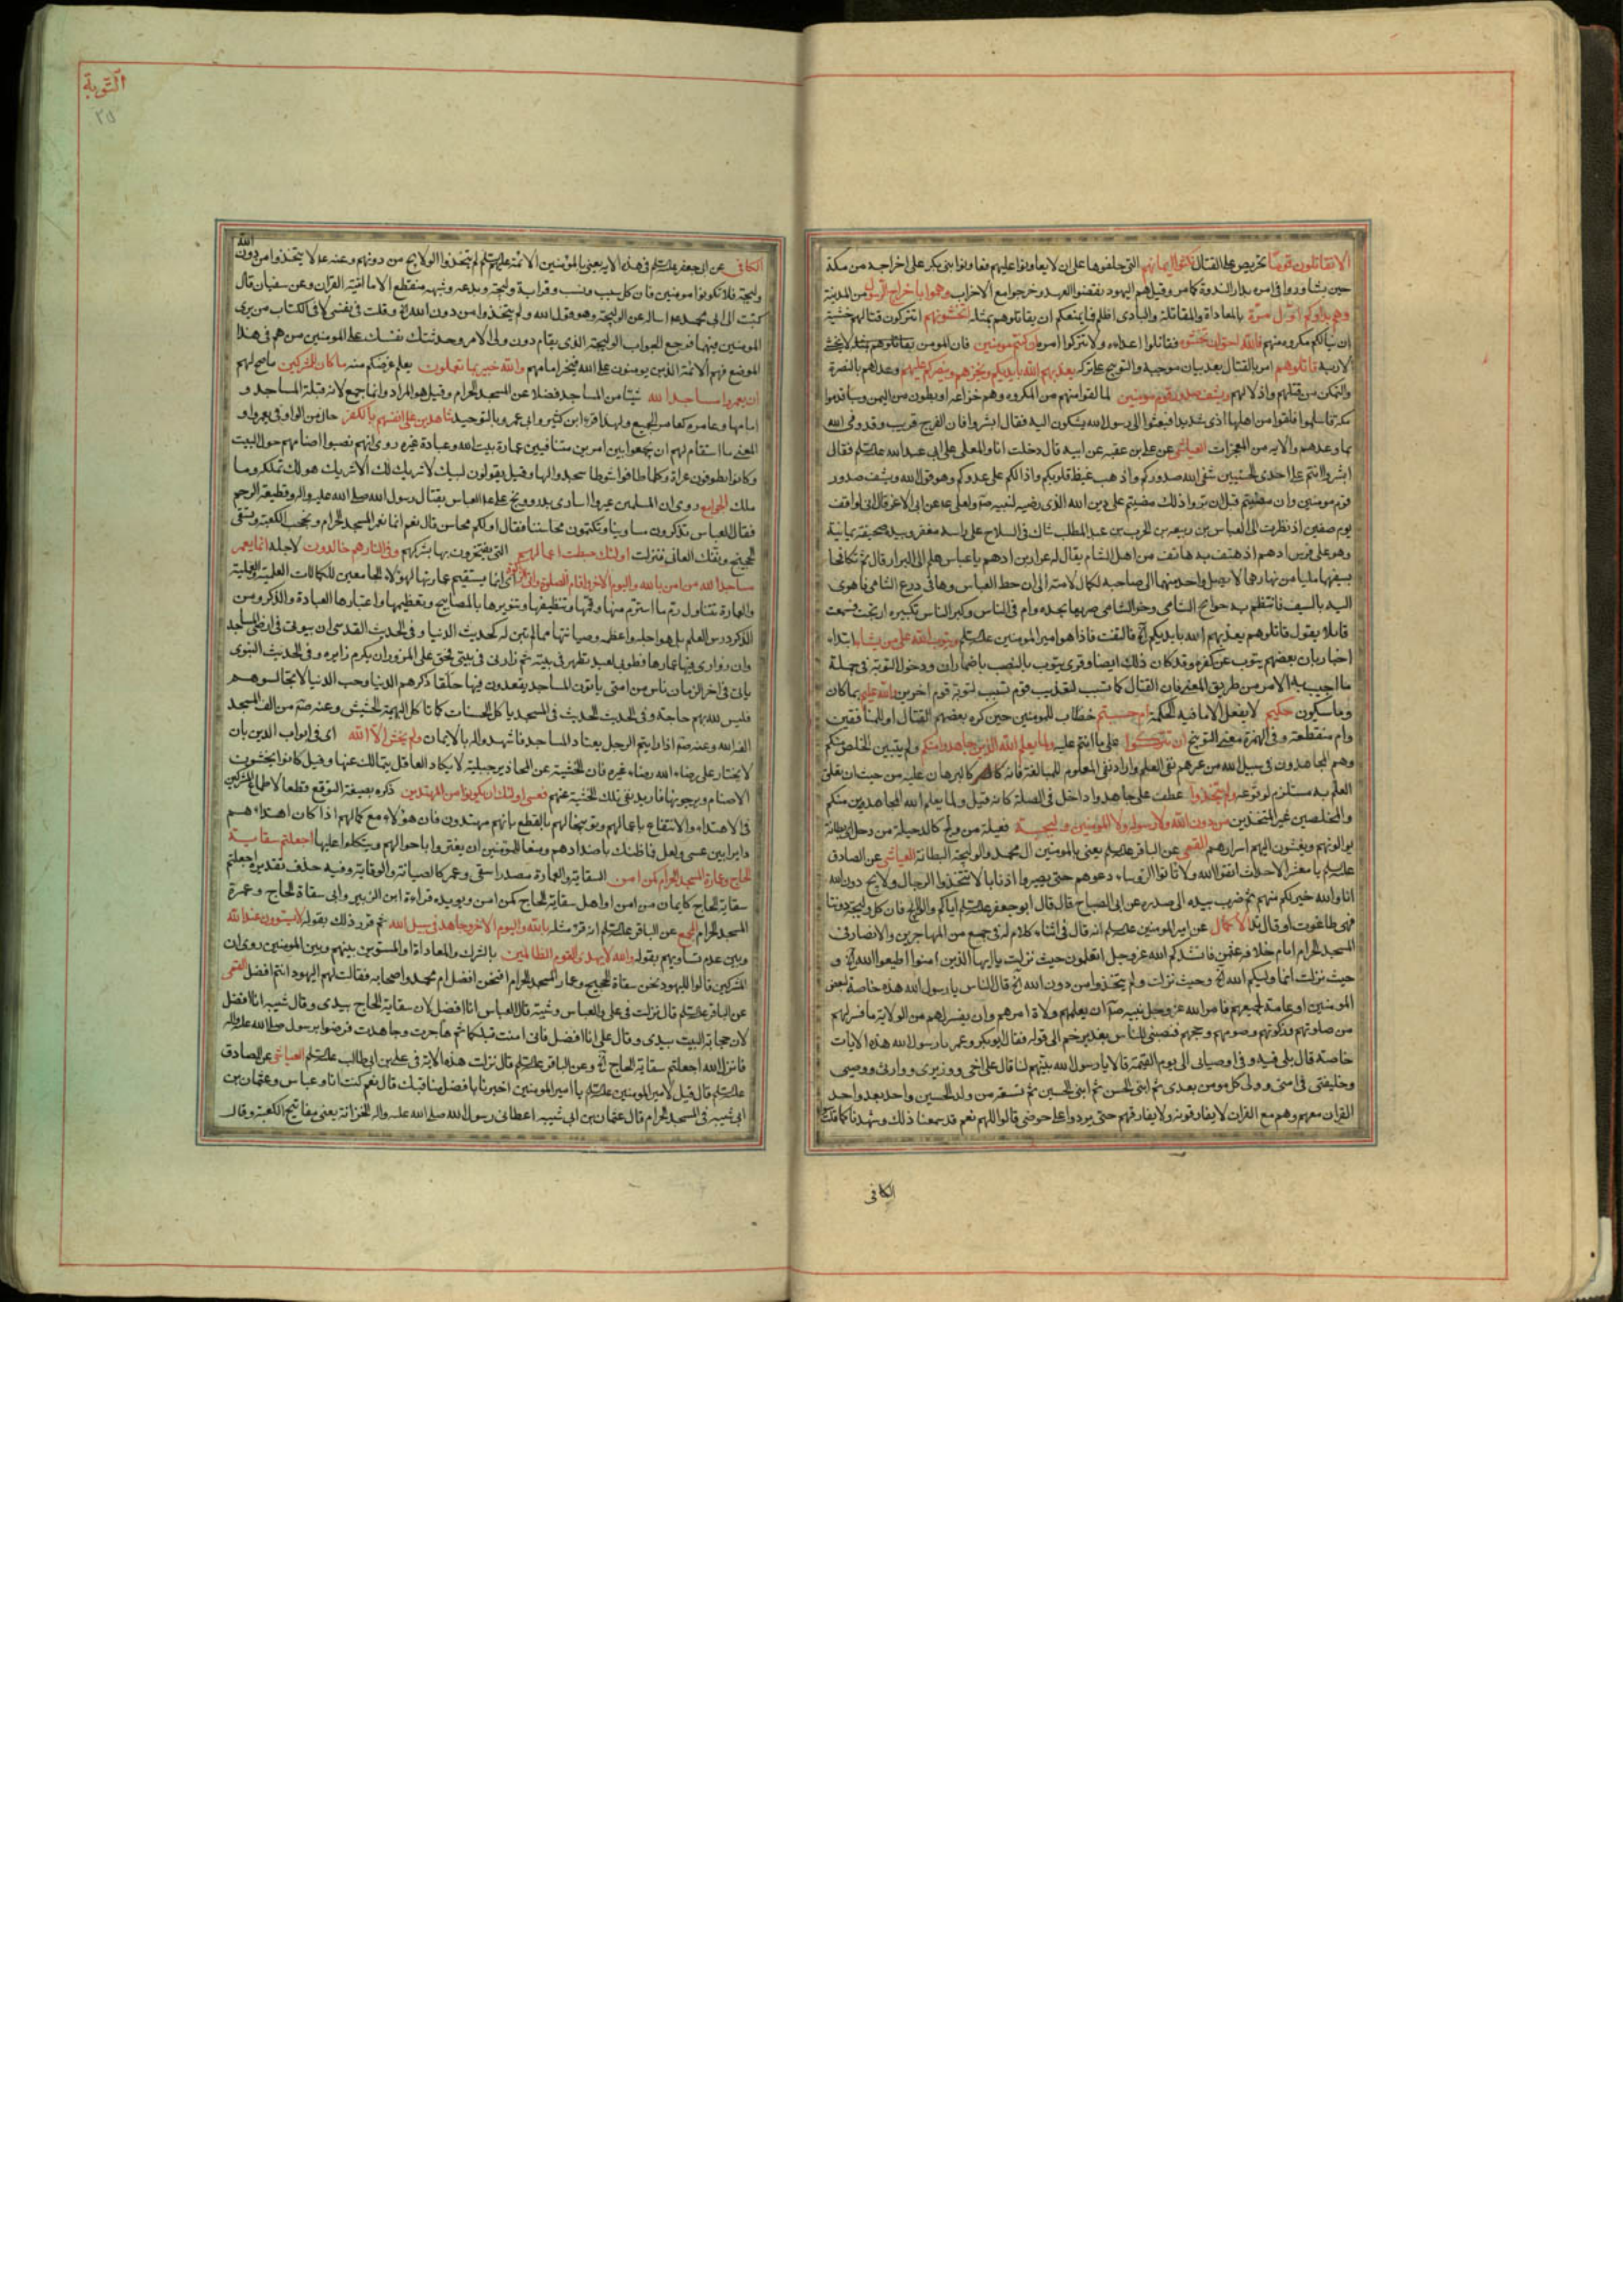 الا تقاتلون قوما تحريض على القتال نكثوا ايمانهم التى حلفوها على ان لا يعاونوا عليهم فعاونوا بنى بكر على اخراجه من مكة
حين تشاوروا فى امره بدار الندوة كما مر وقيل هم اليهود نقضوا العهد وخرجوا مع الاحزاب وهموا باخراج الرسول من المدينة
وهم بدؤكم اول مرة بالمعاداة والمقاتلة والبادى اظلم فما يمنعكم ان يقاتلوهم بمثله اتخشونهم اتتركون قتالهم خشية
ان ينالكم مكروه منهم فالله احق ان تخشوه فقاتلوا اعداءه ولا تتركوا امره ان كنتم مومنين فان المومن
قاتلوهم امر بالقتال بعد بيان موجبه والتوبيخ على تركه يعذبهم الله بايديكم ويخزهم وينصركم عليهم وعد لهم بالنصرة
والتمكن من قتلهم واذلالهم ويشف صدور قوم مومنين لما لقوا منهم من المكروه وهم خزاعة او بطون من اليمن وسبا قدموا
مكة فاسلموا فلقوا من اهلها اذى شديدا فبعثوا الى رسول الله يشكون اليه فقال ابشروا فان الفرج قريب وقد وفى الله
بما وعدهم والاية من المعجزات العياشى عن على بن عقبة عن ابيه قال دخلت انا والمعلى على ابى عبد الله علیه السلم فقال
ابشروا انتم على احدى الحسنيين شفى الله صدوركم واذهب غيظ قلوبكم وادالكم على عدوكم وهو قول الله ويشف صدور
قوم مومنين وان مضيتم قبل ان تروا ذلك مضيتم على دين الله الذى رضيه لنبيه ص ولعلى ع عن ابى الاغر قال انى لواقف
يوم صفين اذ نظرت الى العباس بن ربيعة بن الحرب بن عبد المطلب شاك فى السلاح على راسه مغفر وبيده صحيفة يمانية
وهو على فرس ادهم اذ هتف به هاتف من اهل الشام يقال له عرار بن ادهم يا عباس هلم الى البراز قال ثم تكافحا
بسيفهما مليا من نهارهما لا يصل واحد منهما الى صاحبه لكمال لامته الى ان لحظ العباس وها فى درع الشامى فاهوى
اليه بالسيف فانتظم به جوانح الشامى وخر الشامى صريعا بخده وام فى الناس وكبر الناس تكبيرة ارتجت فسمعت
قايلا يقول قاتلوهم يعذبهم الله بايديكم الخ فالتفت فاذا هو امير المومنين علیه السلم ويتوب الله على من يشاء ابتداء
اخبار بان بعضهم يتوب عن كفره وقد كان ذلك ايضا وقرى يتوب بالنصب باضمار ان ودخول التوبة فى جملة
ما اجيب به الامر من طريق المعنى فان القتال كما تسبب لتعذيب قوم تسبب لتوبة قوم اخرين والله عليم بما كان
وما سيكون حكيم لا يفعل الا ما فيه الحكمة ام حسبتم خطاب للمومنين حين كره بعضهم القتال او المنافقين
وام منقطعة وفى الهمزة معنى التوبيخ ان تتركوا على ما انتم عليه ولما يعلم الله الذين جاهدوا منكم ولم يتبين الخلص منكم
وهم المجاهدون فى سبيل الله من غيرهم نفى العلم واراد نفى المعلوم للمبالغة فانه كالبرهان عليه من حيث ان تعلق
العلم به مستلزم لوقوعه ولم يتخذوا عطف على جاهدوا داخل فى الصلة كانه قيل ولما يعلم الله المجاهدين منكم
والمخلصين غير المتخذين من دون الله ولا رسوله ولا المومنين وليجة فعيلة من ولج كالدخيلة من دخل
يوالونهم ويفشون اليهم اسرارهم القمى عن الباقر علیه السلم يعنى بالمومنين ال محمد والوليجة البطانة العياشى عن الصادق
علیه السلم يا معشر الاحداث اتقوا الله ولا تاتوا الروساء دعوهم حتى يصيروا اذنابا لا تتخذوا الرجال ولايج دون الله
انا والله خير لكم منهم ثم ضرب بيده الى صدره عن ابى الصباح قال قال ابو جعفر علیه السلم اياكم والولايج فان كل وليجة دوننا
فهى طاغوت او قال ند الاكمال عن امير المومنين علیه السلم انه قال فى اثناء كلام له فى جمع من المهاجرين والانصار فى
المسجد الحرام ايام خلافة عثمن فانشدكم الله عز وجل اتعلمون حيث نزلت يا ايها الذين امنوا اطيعوا الله الخ و
حيث نزلت انما وليكم الله الخ وحيث نزلت ولم يتخذوا من دون الله الخ قال الناس يا رسول الله هذه خاصة لبعض
المومنين او عامة لجميعهم فامر الله عز وجل نبيه ص ان يعلمهم ولاة امرهم وان يفسر لهم من الولاية ما فسر لهم
من صلوتهم وزكوتهم وصومهم وحجهم فنصبنى للناس بغدير خم الى قوله فقال ابو بكر وعمر يا رسول الله هذه الايات
خاصة قال بلى فيه وفى اوصيائى الى يوم القيمة قالا يا رسول الله بينهم لنا قال على اخى ووزيرى ووارثى ووصيى
وخليفتى فى امتى وولى كل مومن بعدى ثم ابنى الحسن ثم ابنى الحسين ثم تسعة من ولد الحسين واحد بعد واحد
القران معهم وهم مع القران لا يفارقونه ولا يفارقهم حتى يردوا على حوضى قالوا اللهم نعم قد سمعنا ذلك وشهدنا كما قلت
الكافى
التوبة
٢٥
الله
الكافى عن ابى جعفر علیه السلم فى هذه الاية يعنى بالمومنين الائمة علیهم السلم لم يتخذوا الولايج من دونهم وعنه ع لا يتخذوا من دون
وليجة فلا تكونوا مومنين فان كل سبب ونسب وقرابة ووليجة وبدعة وشبهة منقطع الا ما اثبته القران وعن سفيان قال
كتبت الى ابى محمد ع اساله عن الوليجة وهو قول الله ولم يتخذوا من دون الله الخ وقلت فى نفسى لا فى الكتاب من يرى
المومنين هيهنا فرجع الجواب الوليجة الذى يقام دون ولى الامر وحدثتك نفسك عن المومنين من هم فى هذا
الموضع فهم الائمة الذين يومنون على الله فيجيز امانهم والله خبير بما تعملون يعلم غرضكم منه ما كان للمشركين ما صح لهم
ان يعمروا مساجد الله شيئا من المساجد فضلا عن المسجد الحرام وقيل هو المراد وانما جمع لانه قبلة المساجد و
امامها وعامره كعامر الجميع ولهذا قراءة ابن كثير وابى عمرو بالتوحيد شاهدين على انفسهم بالكفر حال من الواو فى يعمروا و
المعنى ما استقام لهم ان يجمعوا بين امرين متنافيين عمارة بيت الله وعبادة غيره روى انهم نصبوا اصنامهم حول البيت
وكانوا يطوفون عراة وكلما طافوا شوطا سجدوا لها وقيل يقولون لبيك لا شريك لك الا شريك هو لك تملكه وما
ملك الجوامع روى ان المسلمين عيروا اسارى بدر ووبخ على ع العباس بقتال رسول الله صلى الله عليه واله وقطيعة الرحم
فقال العباس تذكرون مساوينا وتكتمون محاسننا فقال اولكم محاسن قال نعم انما نعمر المسجد الحرام ونحجب الكعبة ونسقى
الحجيج ونفك العانى فنزلت اولئك حبطت اعمالهم التى يفتخرون بها بشركهم وفى النار هم خالدون لاجله انما يعمر
مساجد الله من امن بالله واليوم الاخر واقام الصلوة واتى الزكوة اى انما يستقيم عمارتها لهؤلاء الجامعين للكمالات العلمية والعملية
والعمارة تتناول رم ما استرم منها وقمها وتنظيفها وتنويرها بالمصابيح وتعظيمها واعتيادها للعبادة والذكر ومن
الذكر درس العلم بل هو اجله واعظمه وصيانتها مما لم تبن له كحديث الدنيا وفى الحديث القدسى ان بيوتى فى ارضى المساجد
وان زوارى فيها عمارها فطوبى لعبد تطهر فى بيته ثم زارنى فى بيتى فحق على المزور ان يكرم زايره وفى الحديث النبوى
ياتى فى اخر الزمان ناس من امتى ياتون المساجد يقعدون فيها حلقا ذكرهم الدنيا وحب الدنيا لا تجالسوهم
فليس لله بهم حاجة وفى الحديث الحديث فى المسجد ياكل الحسنات كما تاكل البهيمة الحشيش وعنه ص من الف المسجد
الفه الله وعنه ص اذا رايتم الرجل يعتاد المساجد فاشهدوا له بالايمان ولم يخش الا الله اى فى ابواب الدين بان
لا يختار على رضاء الله رضاء غيره فان الخشية عن المحاذير جبلية لا يكاد العاقل يتمالك عنها وقيل كانوا يخشون
الاصنام ويرجونها فاريد نفى تلك الخشية عنهم فعسى اولئك ان يكونوا من المهتدين ذكره بصيغة التوقع قطعا لاطماع المشركين
فى الاهتداء والانتفاع باعمالهم وتوبيخا لهم بالقطع بانهم مهتدون فان هؤلاء مع كمالهم اذا كان اهتداؤهم
دايرا بين عسى ولعل فما ظنك باضدادهم ومنعا للمومنين ان يغتروا باحوالهم ويتكلوا عليها اجعلتم سقاية
الحاج وعمارة المسجد الحرام كمن امن السقاية والعمارة مصدرا سقى وعمر كالصيانة والوقاية وفيه حذف تقديره اجعلتم
سقاية الحاج كايمان من امن او اهل سقاية الحاج كمن امن ويويده قراءة ابن الزبير وابى سقاة الحاج وعمرة
المسجد الحرام المجمع عن الباقر علیه السلم انه قرء مثله بالله واليوم الاخر وجاهد فى سبيل الله ثم قرر ذلك بقوله لا يستوون عند الله
وبين عدم تساويهم بقوله والله لا يهدى القوم الظالمين بالشرك والمعاداة او المستوين بينهم وبين المومنين روى ان
المشركين قالوا لليهود نحن سقاة الحجيج وعمار المسجد الحرام افنحن افضل ام محمد واصحابه فقالت لهم اليهود انتم افضل القمى
عن الباقر علیه السلم قال نزلت فى على والعباس وشيبة قال العباس انا افضل لان سقاية الحاج بيدى وقال شيبة انا افضل
لان حجابة البيت بيدى وقال على انا افضل فانى امنت قبلكما ثم هاجرت وجاهدت فرضوا برسول صلى الله عليه واله
فانزل الله اجعلتم سقاية الحاج الخ وعن الباقر علیه السلم قال نزلت هذه الاية فى على بن ابى طالب علیه السلم العياشى عن الصادق
علیه السلم قال قيل لامير المومنين علیه السلم يا امير المومنين اخبرنا بافضل مناقبك قال نعم كنت انا وعباس وعثمان بن
ابى شيبة فى المسجد الحرام قال عثمان بن ابى شيبة اعطانى رسول الله صلى الله عليه واله الخزانة يعنى مفاتيح الكعبة وقال